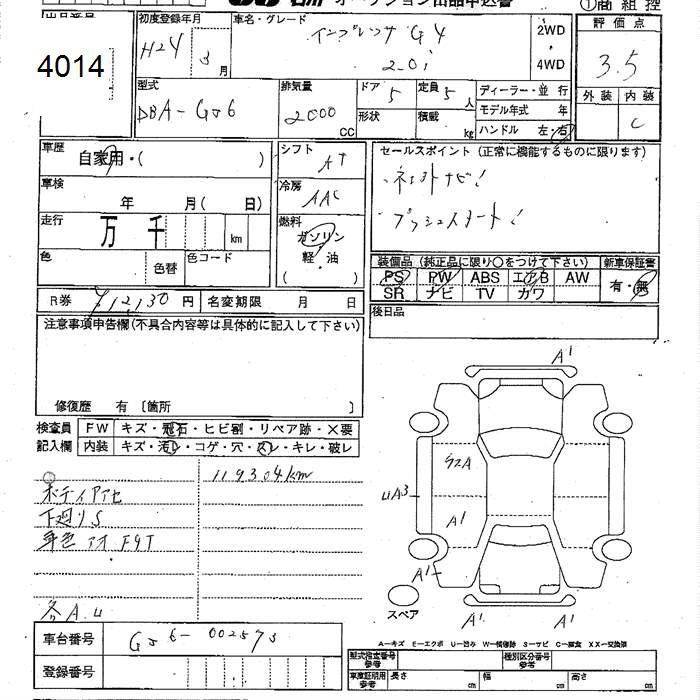 オークション出品申込書
①商 組 控
出品番号
4014
初度登録年月
H24 3 月
車名・グレード
インプレッサ G4
2.0i
2WD
4WD
評 価 点
3.5
外 装 内 装
C
型式
DBA-GJ6
排気量
2000 CC
ドア 5
形状
定員 5 人
積載 kg
ディーラー・並 行
モデル年式 年
ハンドル 左・右
車歴
自家用・( )
シフト
AT
セールスポイント (正常に機能するものに限ります)
プッシュスタート!
車検
年 月( 日)
冷房
AAC
走行
万 千 km
燃料
ガソリン
軽・油
色
色替
色コード
装備品 (純正品に限り○をつけて下さい)
新車保証書
PS PW ABS エアB AW
SR ナビ TV カワ
有・無
R券 ¥12,130 円
名変期限 月 日
後日品
注意事項申告欄(不具合内容等は具体的に記入して下さい)
修復歴 有 〔箇所 〕
検査員
記入欄
FW キズ・飛石・ヒビ割・リペア跡・X要
内装 キズ・汚レ・コゲ・穴・スレ・キレ・破レ
119304km
下廻りS
各A.U
A1
S2A
UA3
A1
A1
A1
A1
スペア
車台番号
GJ6-002575
登録番号
A-キズ E-エクボ U-凹み W-補修跡 S-サビ C-腐食 XX-交換済
型式指定番号
参考
種別区分番号
参考
車庫証明用
参考
長さ cm
幅 cm
高さ cm